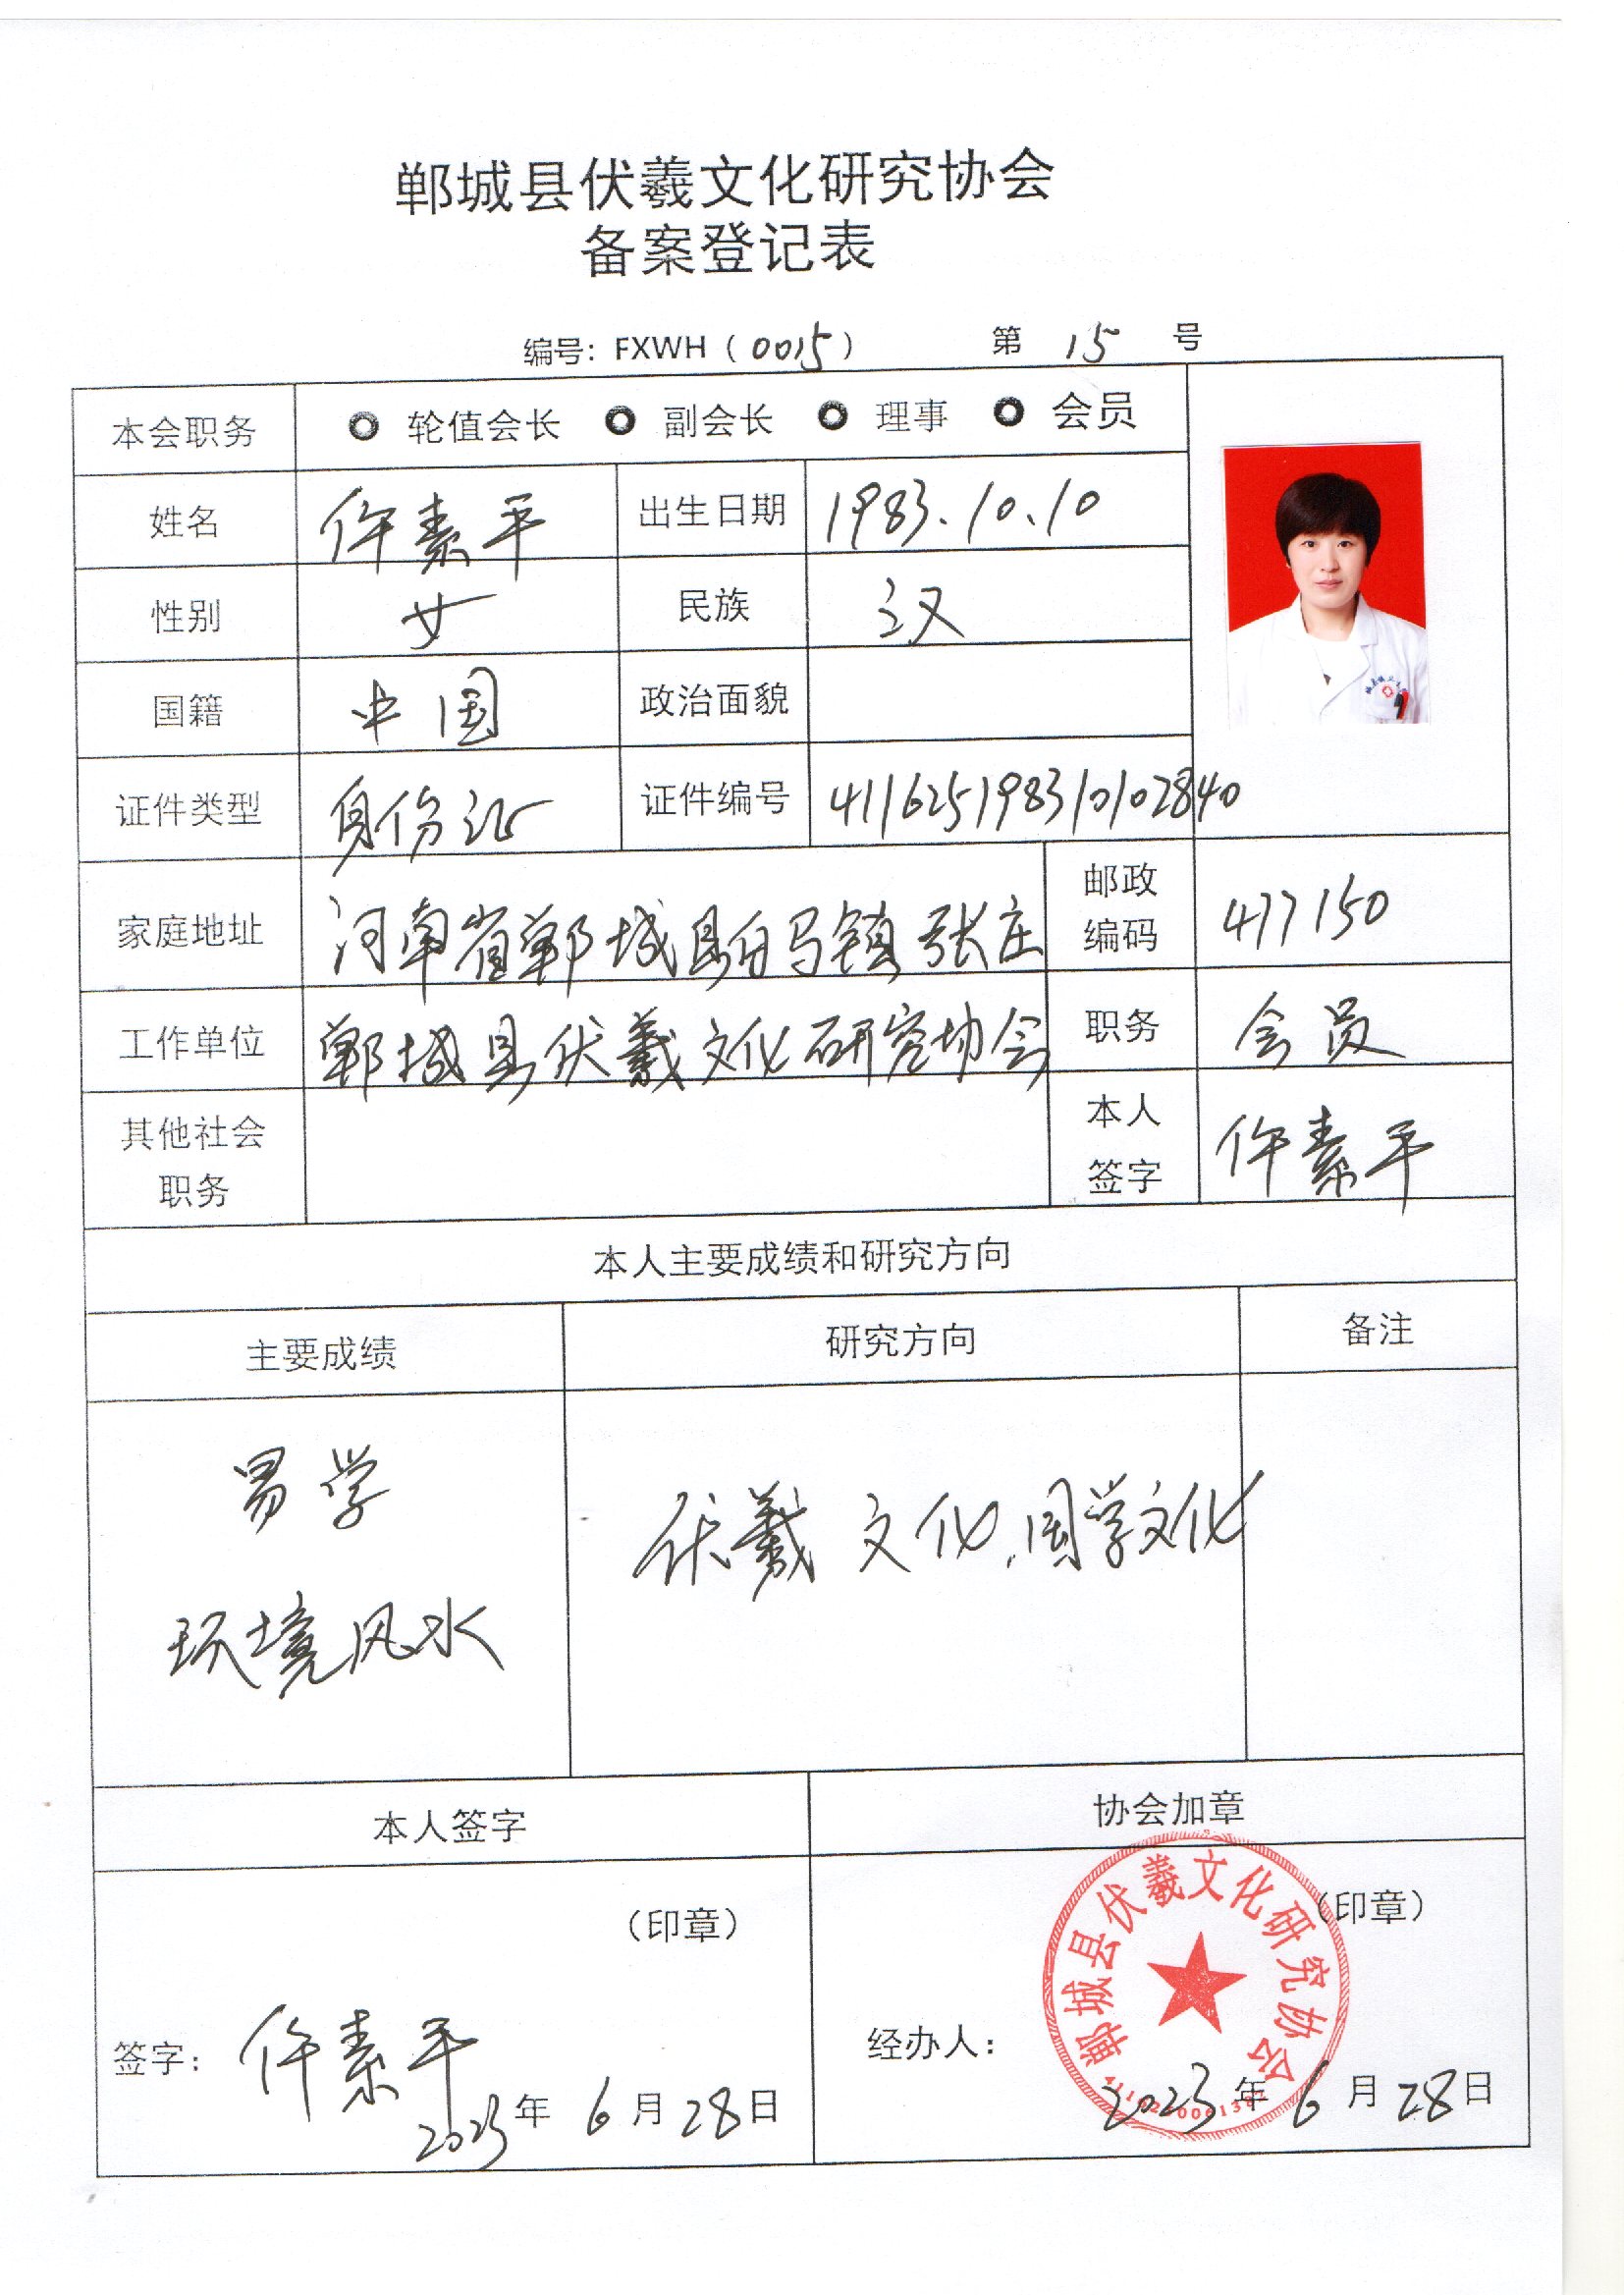 郸城县伏羲文化研究协会
备案登记表
编号：FXWH（0015） 第 15 号
本会职务 轮值会长 副会长 理事 会员
姓名 仵素平 出生日期 1983.10.10
性别 女 民族 汉
国籍 中国 政治面貌
证件类型 身份证 证件编号 411625198310102840
家庭地址 河南省郸城县白马镇张庄 邮政编码 477150
工作单位 郸城县伏羲文化研究协会 职务 会员
其他社会职务 本人签字 仵素平
本人主要成绩和研究方向
主要成绩 研究方向 备注
易学
环境风水
伏羲文化.国学文化
本人签字 协会加章
（印章） （印章）
郸城县伏羲文化研究协会
签字：仵素平 经办人：
2023年6月28日 2023年6月28日